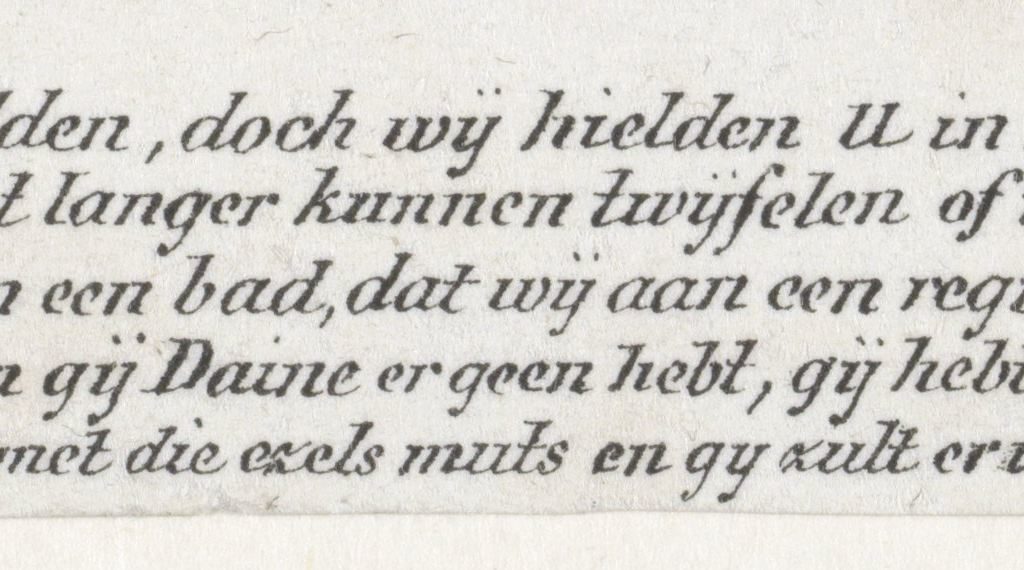 lden, doch wij hielden U in
t langer kunnen twijfelen of
n een bad, dat wij aan een regi
n gij Daine er geen hebt, gij hebt
met die ezels muts en gy zult er